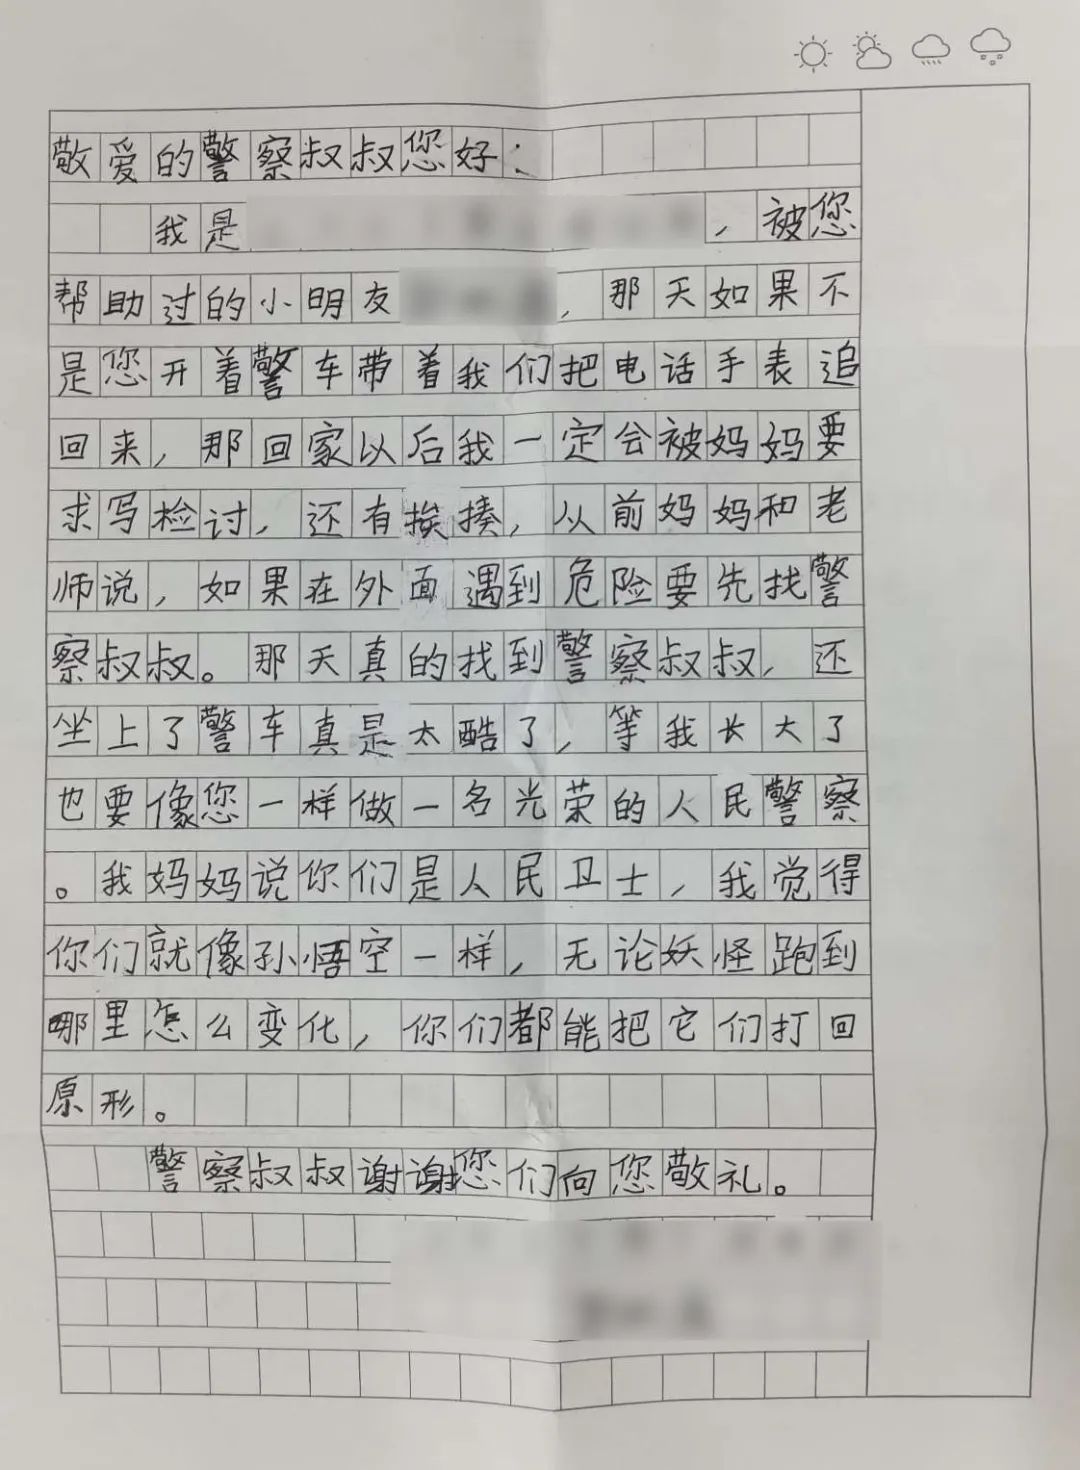 敬爱的警察叔叔您好：
我是，被您
帮助过的小明友，那天如果不
是您开着警车带着我们把电话手表追
回来，那回家以后我一定会被妈妈要
求写检讨，还有挨揍，从前妈妈和老
师说，如果在外面遇到危险要先找警
察叔叔。那天真的找到警察叔叔，还
坐上了警车真是太酷了，等我长大了
也要像您一样做一名光荣的人民警察
。我妈妈说你们是人民卫士，我觉得
你们就像孙悟空一样，无论妖怪跑到
哪里怎么变化，你们都能把它们打回
原形。
警察叔叔谢谢您们向您敬礼。